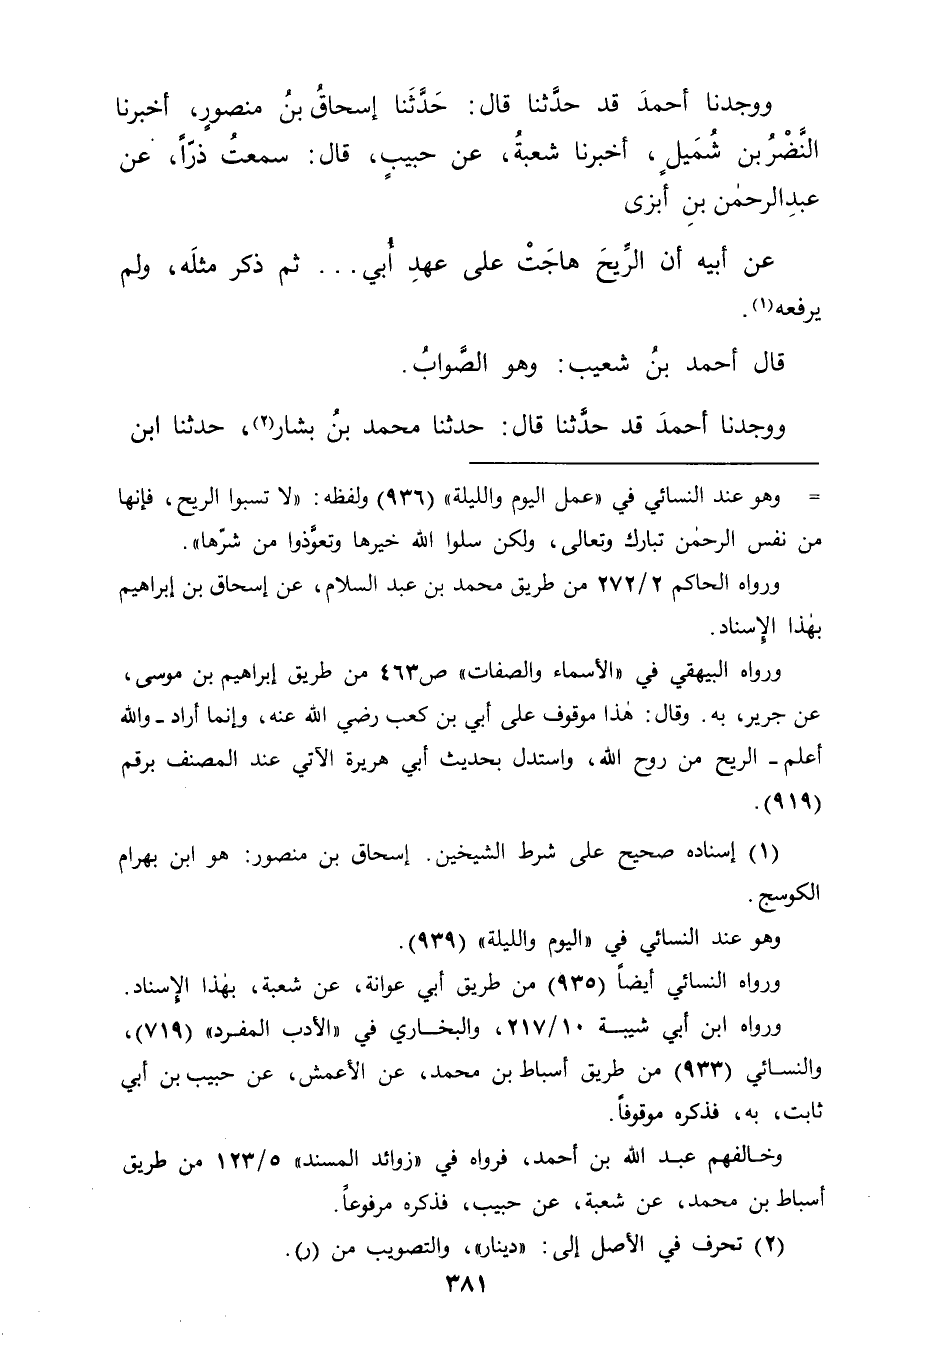 ووجدنا أحمدَ قد حدَّثنا قال: حَدَّثَنا إسحاقُ بنُ منصورٍ، أخبرنا
النَّضْرُ بن شُمَيلٍ، أخبرنا شعبةُ، عن حبيبٍ، قال: سمعتُ ذرّاً، عن
عبدِالرحمٰن بنِ أبزى
عن أبيه أن الرِّيحَ هاجَتْ على عهدِ أُبي... ثم ذكر مثلَه، ولم
يرفعه(١).
قال أحمد بنُ شعيب: وهو الصَّوابُ.
ووجدنا أحمدَ قد حدَّثنا قال: حدثنا محمد بنُ بشار(٢)، حدثنا ابن
= وهو عند النسائي في «عمل اليوم والليلة» (٩٣٦) ولفظه: «لا تسبوا الريح، فإنها
من نفس الرحمٰن تبارك وتعالى، ولكن سلوا الله خيرها وتعوَّذوا من شرّها».
ورواه الحاكم ٢٧٢/٢ من طريق محمد بن عبد السلام، عن إسحاق بن إبراهيم
بهٰذا الإسناد.
ورواه البيهقي في «الأسماء والصفات» ص٤٦٣ من طريق إبراهيم بن موسى،
عن جرير، به. وقال: هٰذا موقوف على أبي بن كعب رضي الله عنه، وإنما أراد ـ والله
أعلم ـ الريح من روح الله، واستدل بحديث أبي هريرة الآتي عند المصنف برقم
(٩١٩).
(١) إسناده صحيح على شرط الشيخين. إسحاق بن منصور: هو ابن بهرام
الكوسج.
وهو عند النسائي في «اليوم والليلة» (٩٣٩).
ورواه النسائي أيضاً (٩٣٥) من طريق أبي عوانة، عن شعبة، بهٰذا الإسناد.
ورواه ابن أبي شيبة ٢١٧/١٠، والبخاري في «الأدب المفرد» (٧١٩)،
والنسائي (٩٣٣) من طريق أسباط بن محمد، عن الأعمش، عن حبيب بن أبي
ثابت، به، فذكره موقوفاً.
وخالفهم عبد الله بن أحمد، فرواه في «زوائد المسند» ١٢٣/٥ من طريق
أسباط بن محمد، عن شعبة، عن حبيب، فذكره مرفوعاً.
(٢) تحرف في الأصل إلى: «دينار»، والتصويب من (ر).
٣٨١